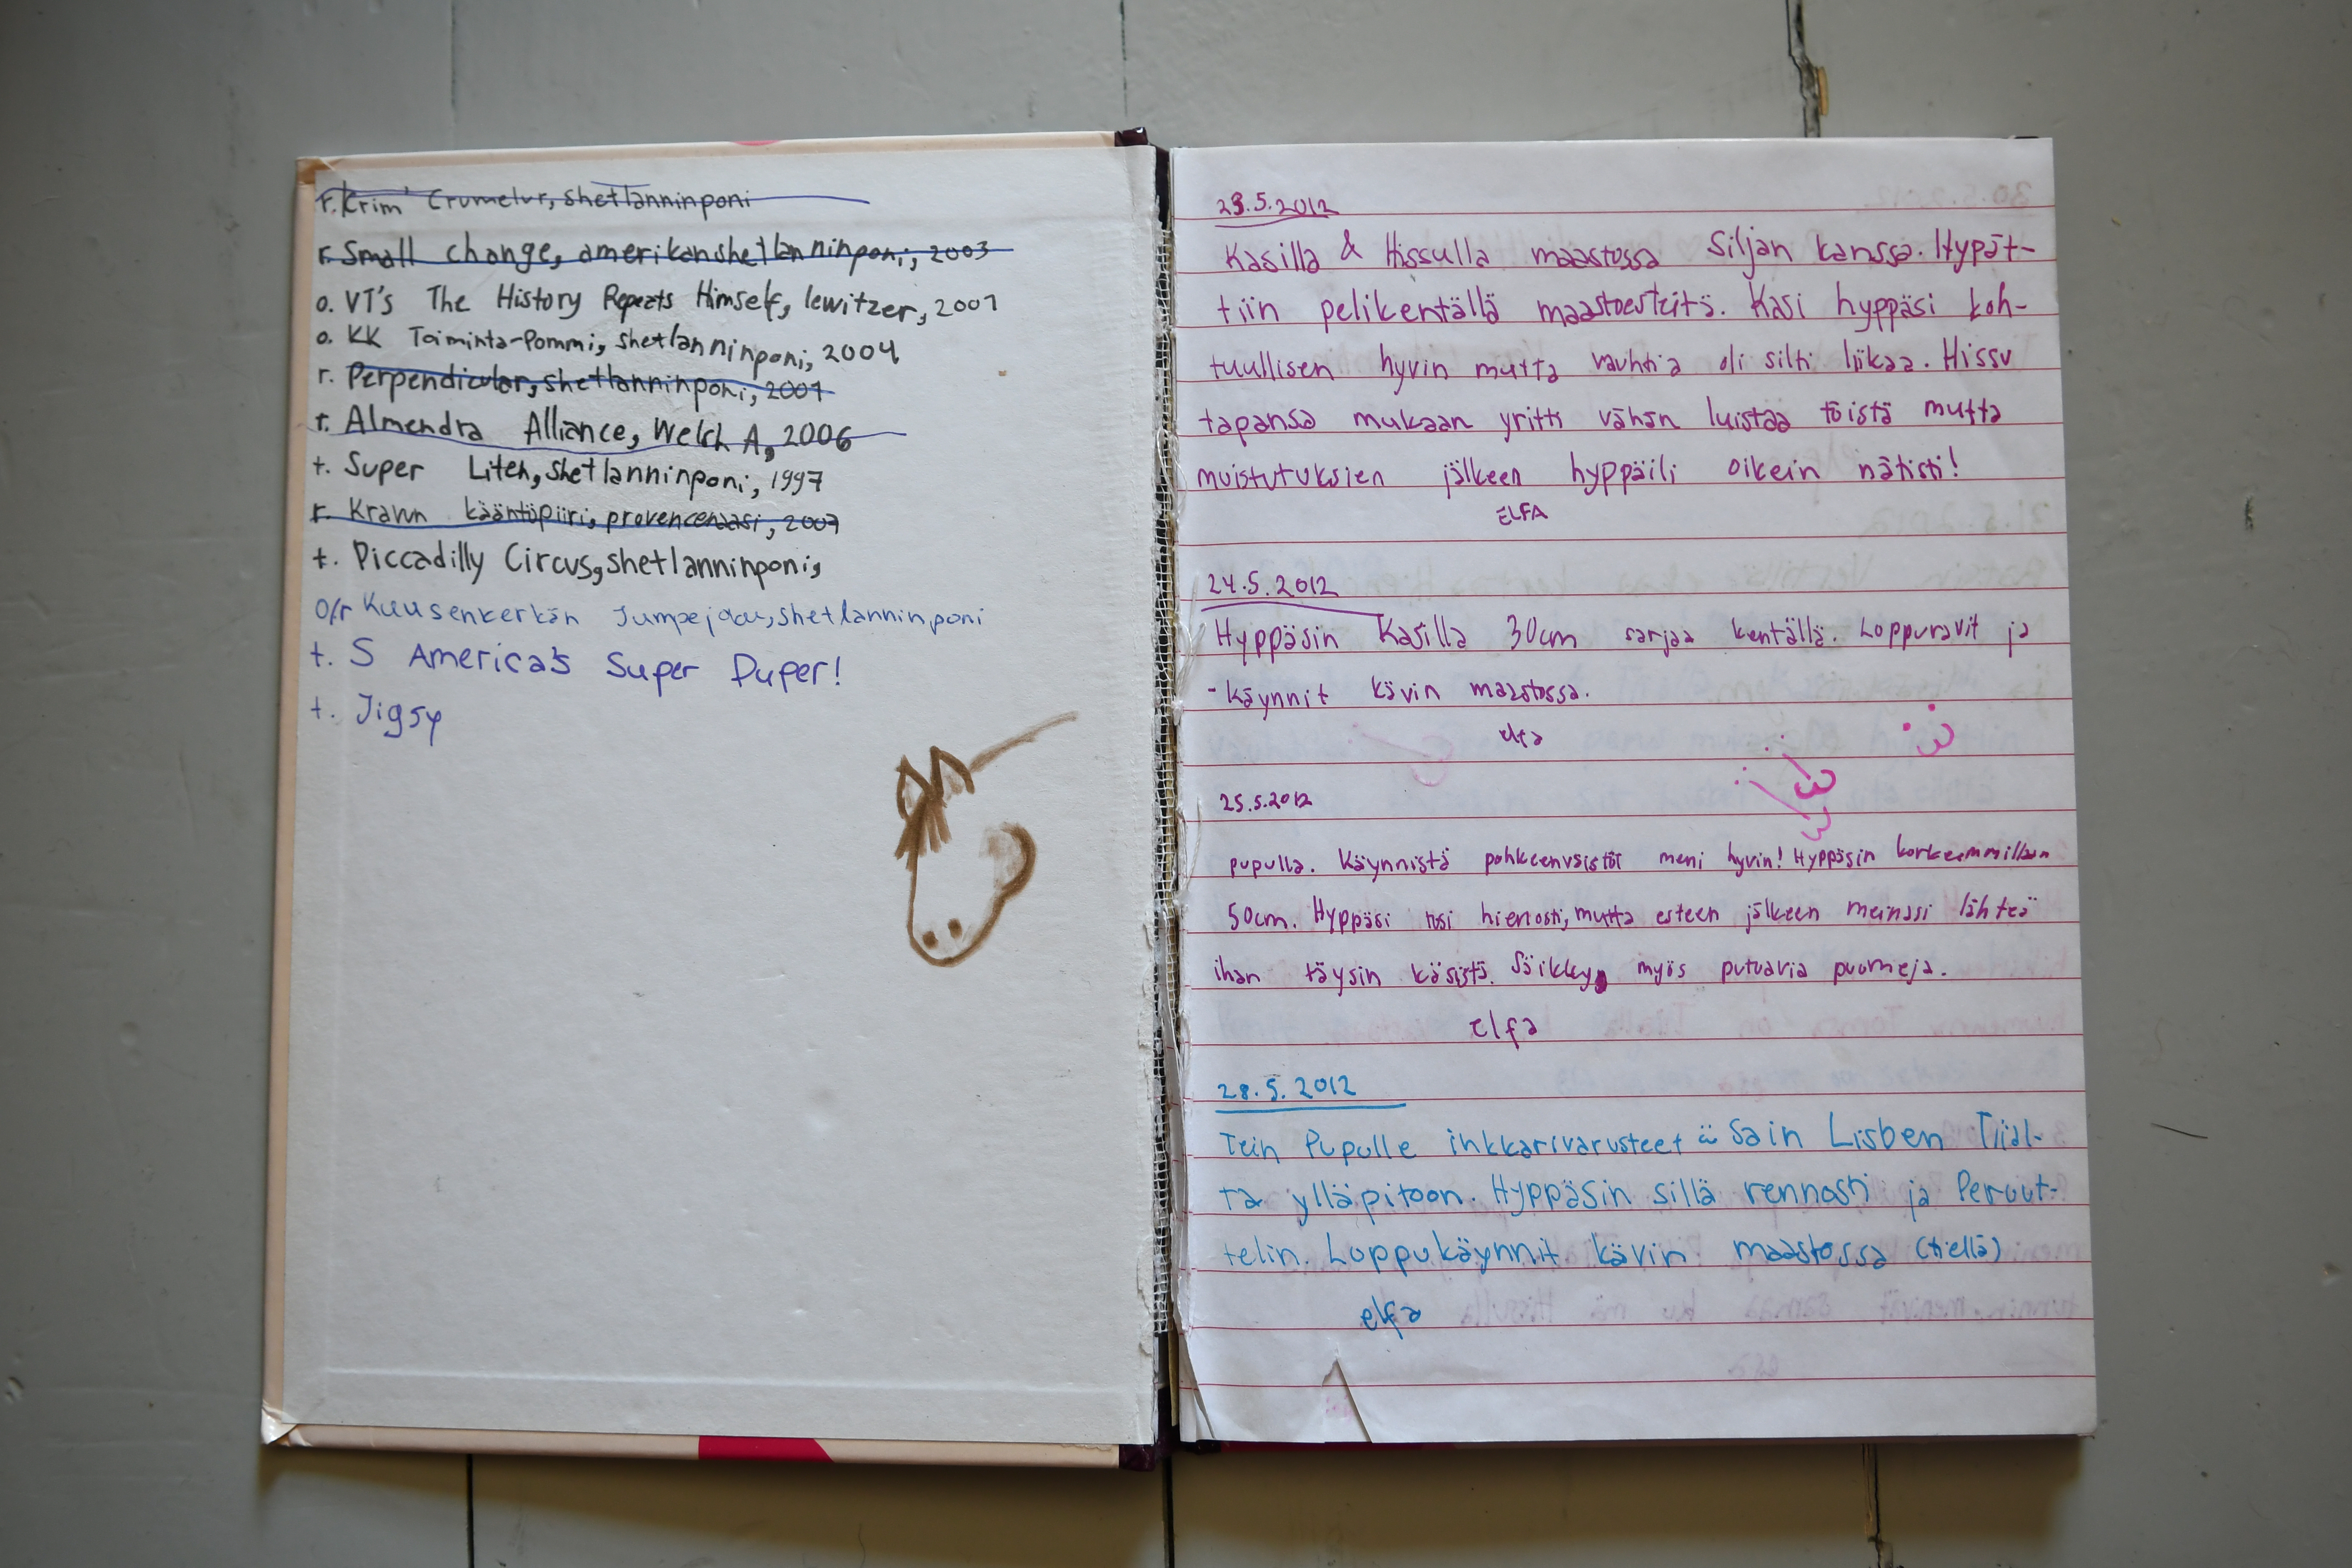 r. Krim Crumelur, shetlanninponi
r. Small change, amerikanshetlanninponi, 2003
o. VT's The History Repeats Himself, lewitzer, 2007
o. KK Toiminta-Pommi, shetlanninponi, 2004
r. Perpendicular, shetlanninponi, 2007
r. Almendra Alliance, Welch A, 2006
t. Super Liten, shetlanninponi, 1997
r. Krawn kääntöpiiri, provencenaasi, 2007
t. Piccadilly Circus, shetlanninponi,
o/r Kuusenkerkän shetlanninponi
t. S America's Super Duper!
t. Jigsy
23.5.2012
Kasilla & Hissulla maastossa Siljan kanssa. Hypät-
tiin pelikentällä maastoesteitä. Kasi hyppäsi koh-
tuullisen hyvin mutta vauhtia oli silti liikaa. Hissu
tapansa mukaan yritti vähän luistaa töistä mutta
muistutuksien jälkeen hyppäili oikein nätisti!
ELFA
24.5.2012
Hyppäsin Kasilla 30cm sarjaa kentällä. Loppuravit ja
-käynnit kävin maastossa.
elfa
25.5.2012
pupulla. Käynnistä pohkeenväistöt meni hyvin! Hyppäsin korkeimmillaan
50cm. Hyppäsi tosi hienosti, mutta esteen jälkeen meinasi lähteä
ihan täysin käsistä. Säikkyy myös putoavia puomeja.
elfa
28.5.2012
Tein Pupulle inkkarivarusteet ü Sain Lisben Tiial-
ta ylläpitoon. Hyppäsin sillä rennosti ja Peruut-
telin. Loppukäynnit kävin maastossa (tiellä)
elfa